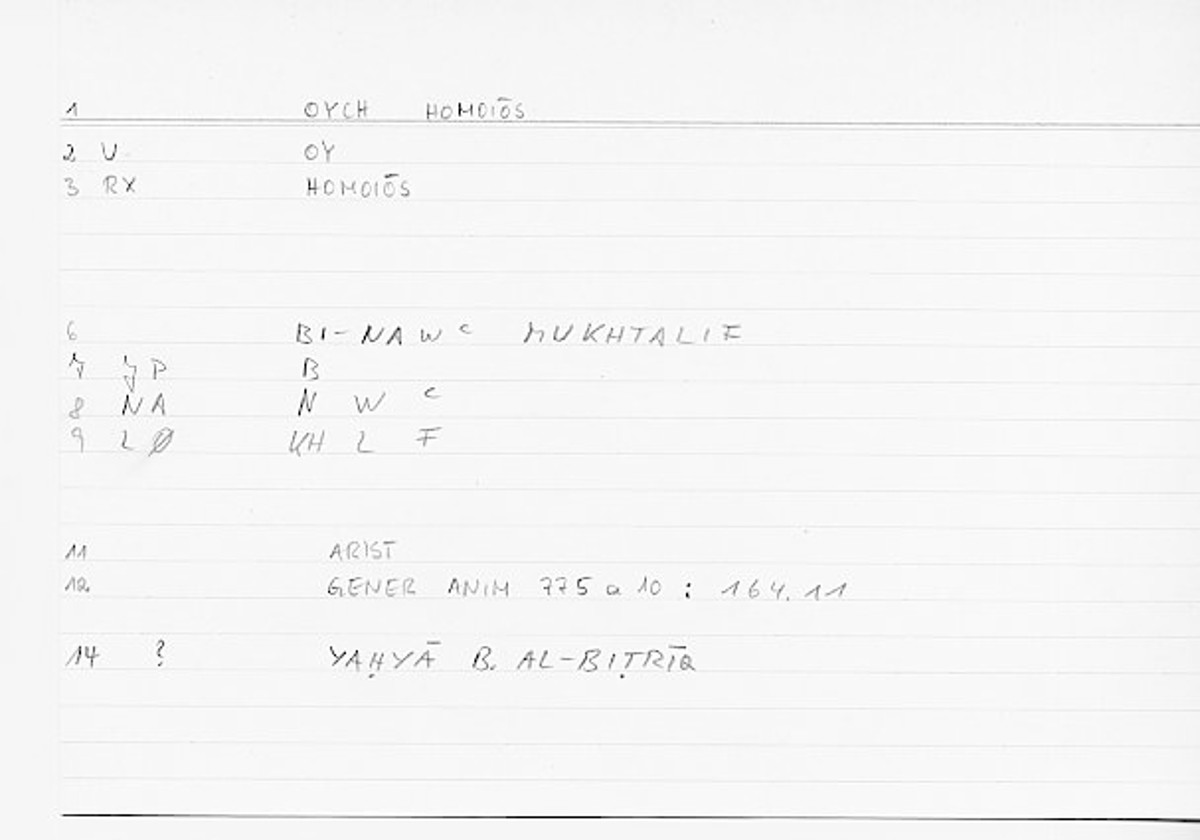 1 OYCH HOMOIŌS
2 U OY
3 RX HOMOIŌS
6 BI-NAWᶜ MUKHTALIF
7 JP B
8 NA N W ᶜ
9 LØ KH L F
11 ARIST
12 GENER ANIM 775 a 10 : 164.11
14 ? YAḤYĀ B. AL-BIṬRĪQ